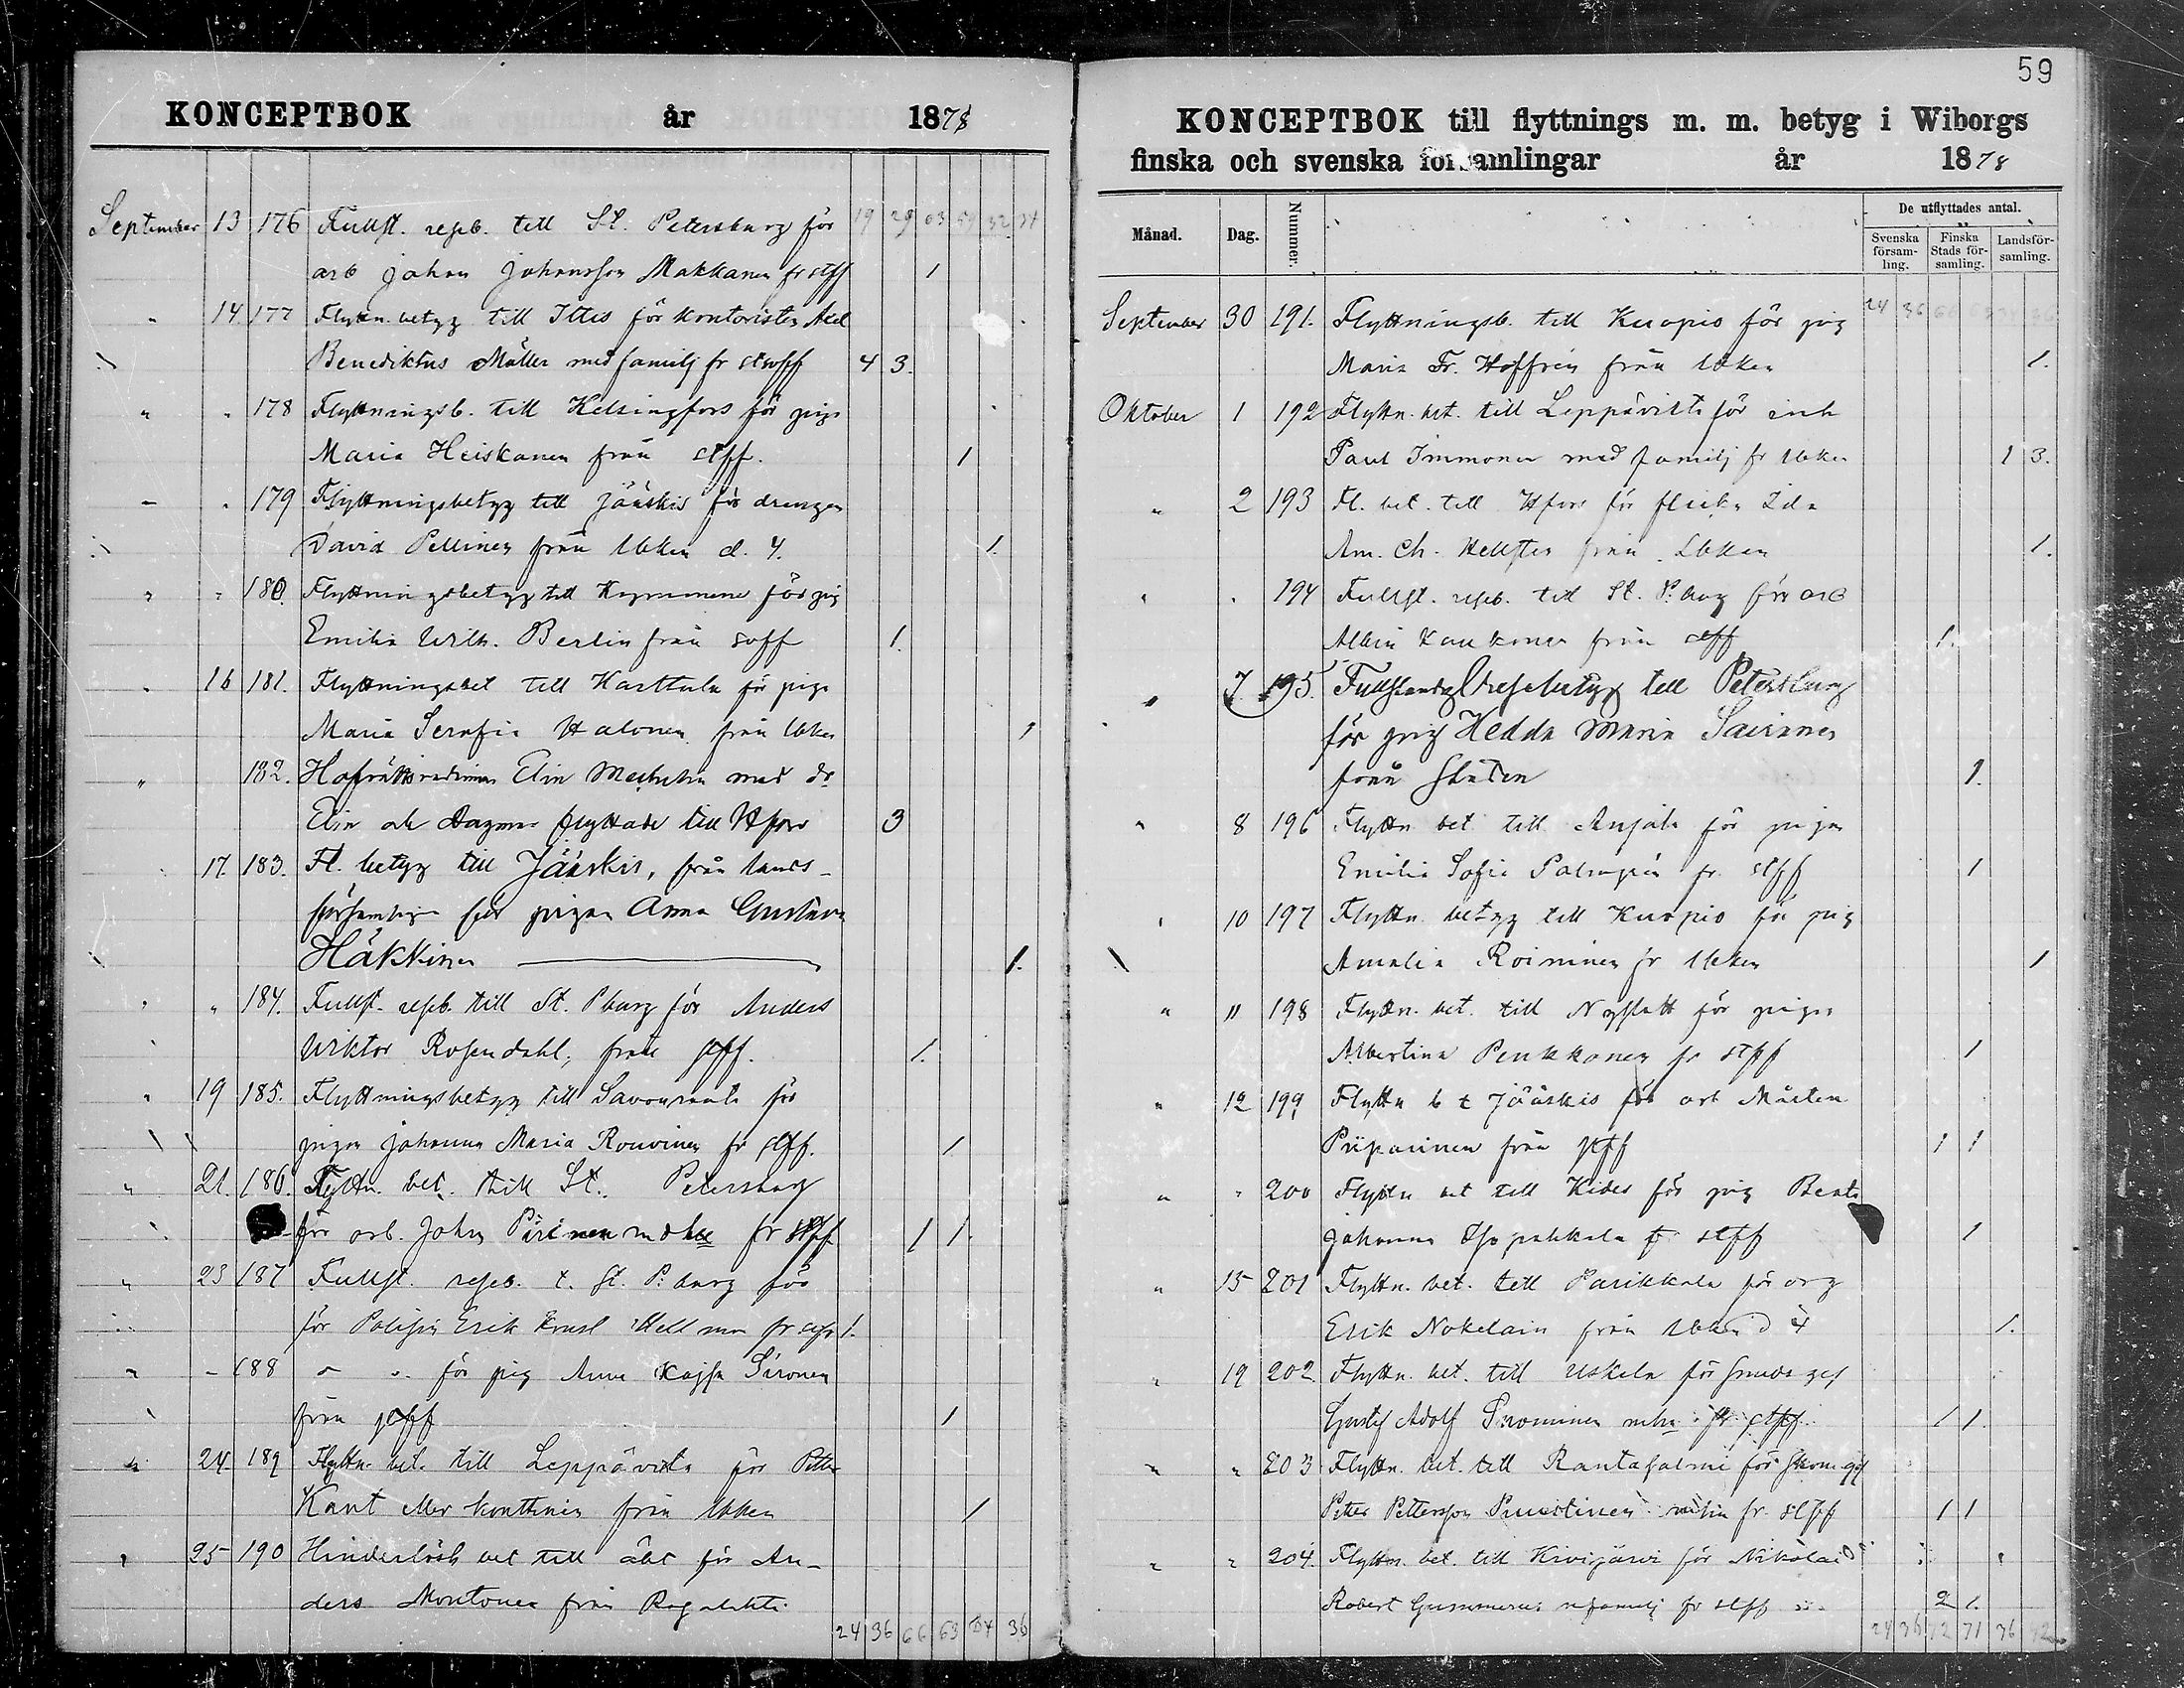 KONCEPTBOK år 1878
September 13 176 Fullst. reseb. till St. Petersburg för 19 29 63 59 32 34
arb Johan Johansson Makkanen fr stff 1
" 14 177 Flyttn. betyg till Ittis för kontoristen Axel
Benediktus Möller med familj fr stsvff 4 3.
" " 178 Flyttningsb. till Helsingfors för piga
Maria Heiskanen från stff. 1
" " 179 Flyttningsbetyg till Jääskis för drengen
David Pellinen från lbken d. 4. 1.
" " 180. Flyttningsbetyg till Kymmene för pig
Emilia Wilh. Berlin från svff 1.
" 16 181. Flyttningsbet till Karttula för piga
Maria Serafia Halonen från lbken 1
" 182. Hofrättsrådinnan Elin med dr
Elin och Dagmar flyttade till Hfors 3
17. 183. Fl. betyg till Jääskis, från lands-
församlingen för pigan Anna Gustava
Häkkinen 1.
" " 184. Fullst. reseb. till St. Pburg för Anders
Wiktor Rosendahl, från stff. 1.
" 19 185. Flyttningsbetyg till Savonranta för
pigan Johanna Maria Rouvinen fr stff. 1
" 21. 186. Flyttn. bet. till St. Petersburg
för arb. Johan Piirinen m hu fr stff 1 1.
" 23 187 Fullst. reseb. t. St. P:burg för
för Polisen Erik Hellman fr 1.
" - 188 " " för pig Anna Kajsa Sironen
från stff 1
" 24. 189 Flyttn. bet. till Leppävirta för Petter
Kant eller Konttinen från lbken 1
" 25 190 Hinderlösh bet till äkt för An-
ders Montonen från
24 36 66 63 34 36
59
KONCEPTBOK till flyttnings m. m. betyg i Wiborgs
finska och svenska församlingar år 1878
Månad. Dag. Nummer. De utflyttades antal.
Svenska försam-ling. Finska Stads för-samling. Landsför-samling.
September 30 191. Flyttningsb. till Kuopio för pig 24 36 66 63 34 36
Maria Fr. Hoffrén från lbken 1.
Oktober 1 192 Flyttn. bet. till Leppävirta för inh
Paul Immonen med familj fr lbken 1 3.
" 2 193 Fl. bet. till Hfors för flicka Ida
Am. Ch. från lbken 1.
" " 194 Fullst. reseb. till St. P:burg för arb
Albin Kaukonen från stff 1.
" 7. 195. Fullständig resebetyg till Petersburg
för pig Hedda Maria Sairanen
från staden 1.
" 8 196 Flyttn bet till Anjala för pigan
Emilia Sofia Palmgrén fr. stff 1
" 10 197 Flyttn. betyg till Kuopio för pig
Amalia Roininen fr lbken 1
" 11 198 Flyttn. bet. till Nyslott för pigan
Albertina Penkkonen fr stff 1
" 12 199 Flyttn b t Jääskis för arb Mårten
Piiparinen från stff 1 1
" " 200 Flyttn bet till Kides för pig Beata
Johanna fr stff 1
" 15 201 Flyttn. bet. till Parikkala för
Erik Nokelain från lbken d 4 1.
" 19 202. Flyttn. bet. till Uskela för smedsges
Gustaf Adolf Suominen mhu fr stff 1 1.
" " 203 Flyttn. bet. till Rantasalmi för skom.ges
Petter Pettersson Puustinen mhu fr. stff 1 1
" " 204. Flyttn. bet. till Kivijärvi för Nikolai
Robert Gummerus mfamilj fr stff 2 1.
24 36 72 71 36 42